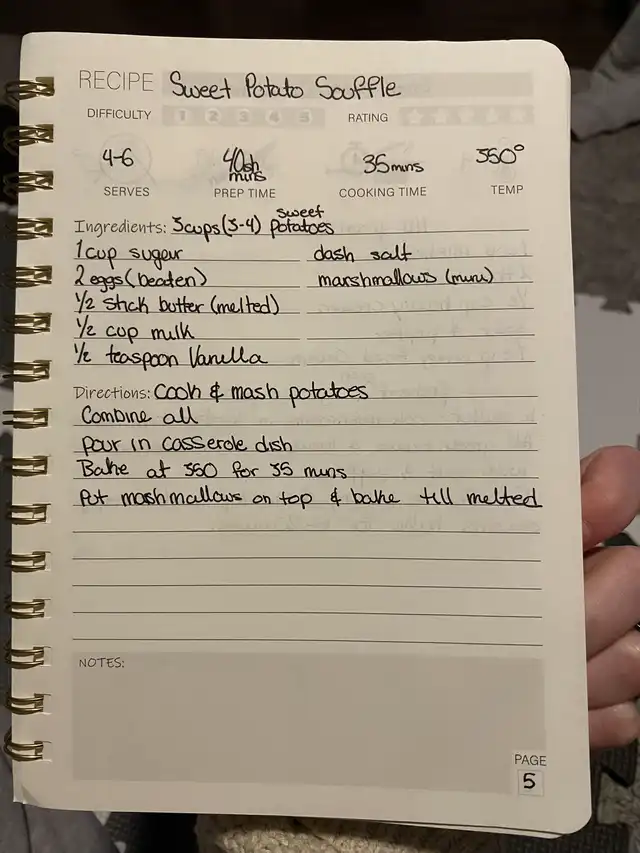 RECIPE Sweet Potato Souffle
DIFFICULTY 1 2 3 4 5 RATING
4-6 40ish mins 35mins 350°
SERVES PREP TIME COOKING TIME TEMP
Ingredients: 3cups(3-4) sweet potatoes
1 cup sugar dash salt
2 eggs (beaten) marshmallows (mini)
1/2 stick butter (melted)
1/2 cup milk
1/2 teaspoon Vanilla
Directions: Cook & mash potatoes
Combine all
pour in casserole dish
Bake at 350 for 35 mins
Put marshmallows on top & bake till melted
NOTES:
PAGE
5